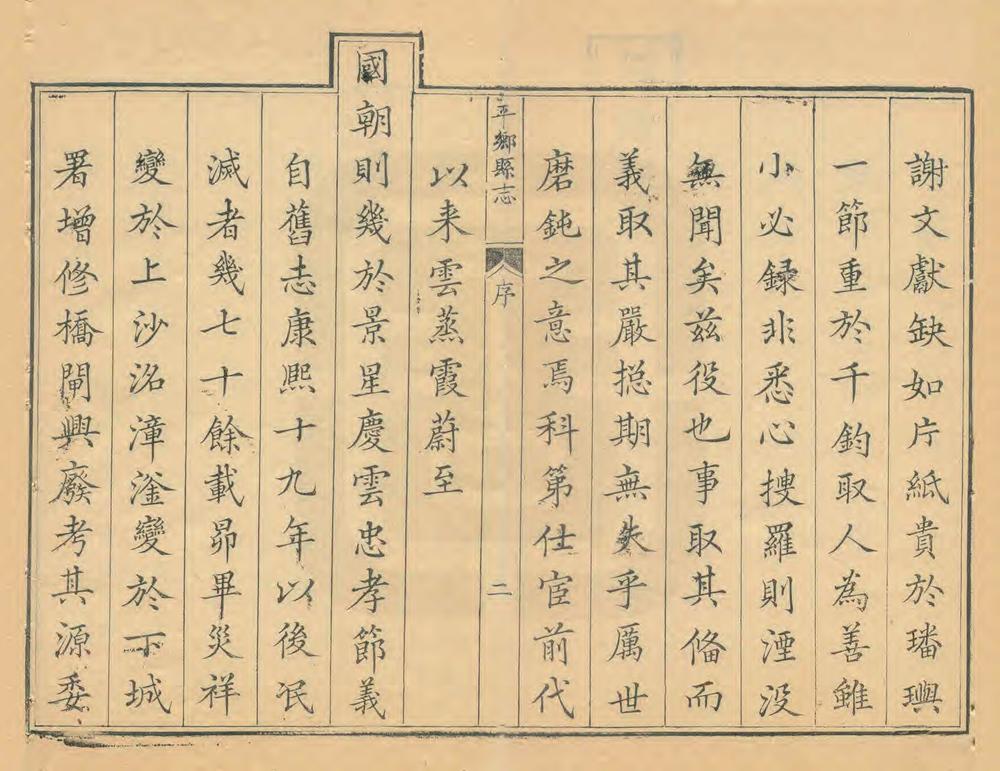 謝文獻缺如片紙貴於璠璵
一節重於千鈞取人為善雖
小必録非悉心搜羅則湮没
無聞矣兹役也事取其俻而
義取其嚴揔期無失乎厲世
磨鈍之意焉科第仕宦前代
平鄉縣志
序
二
以来雲蒸霞蔚至
國朝則幾於景星慶雲忠孝節義
自舊志康熙十九年以後泯
滅者幾七十餘載昴畢災祥
變於上沙洺漳滏變於下城
署增修橋閘興廢考其源委